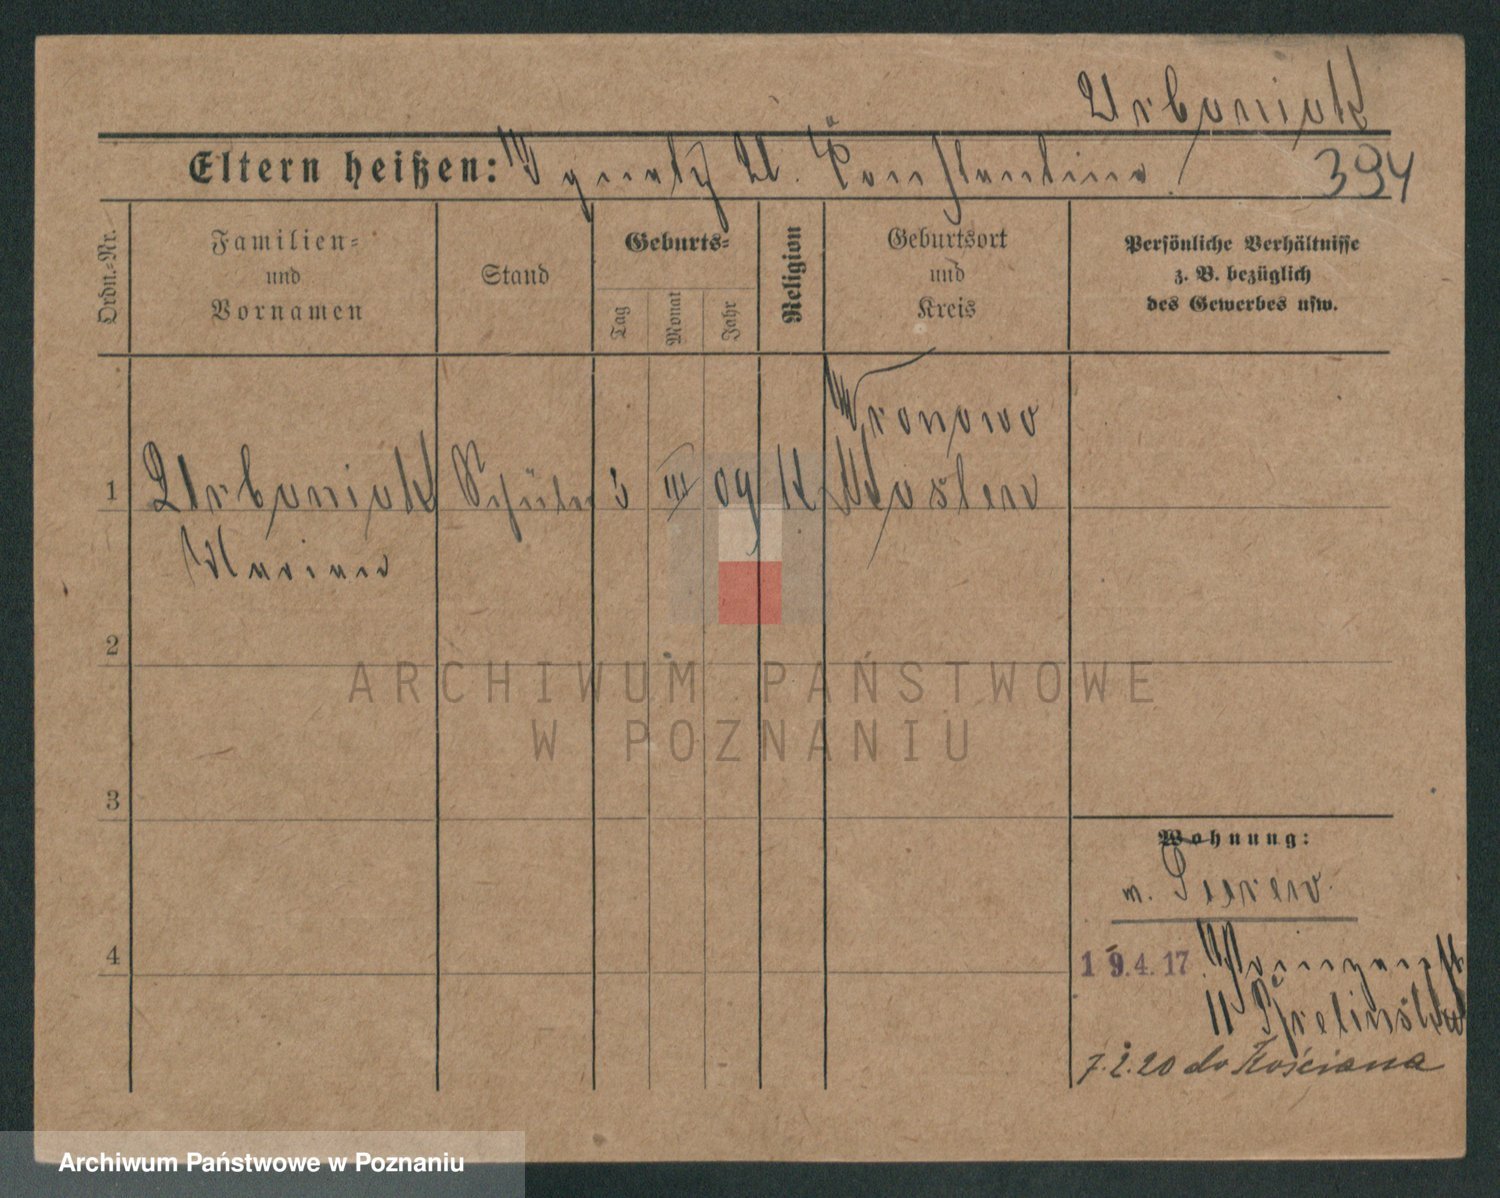 Urbaniak
Eltern heißen: Ignatz U. Konstantina
394
Ordn.=Nr.
Familien=
und
Vornamen
Stand
Geburts=
Tag
Monat
Jahr
Religion
Geburtsort
und
Kreis
Persönliche Verhältnisse
z. B. bezüglich
des Gewerbes usw.
Wronowo
1 Urbaniak Schüler 3 III 09 K Kosten
Marian
2
ARCHIWUM PAŃSTWOWE
W POZNANIU
3
Wohnung:
m.
4
19.4.17
11
7.2.20 do Kościana
Archiwum Państwowe w Poznaniu